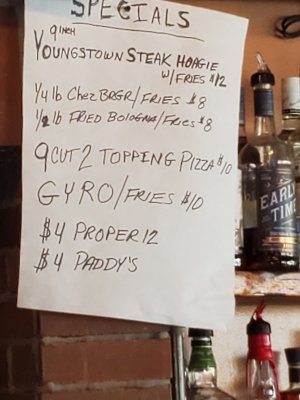 SPECIALS
9 INCH
YOUNGSTOWN STEAK HOAGIE
W/FRIES $12
1/4 lb CHEZ BRGR/FRIES $8
1/2 lb FRIED BOLOGNA/FRIES $8
9 CUT 2 TOPPING PIZZA $10
GYRO/FRIES $10
$4 PROPER 12
$4 PADDY'S
EARLY
TIME